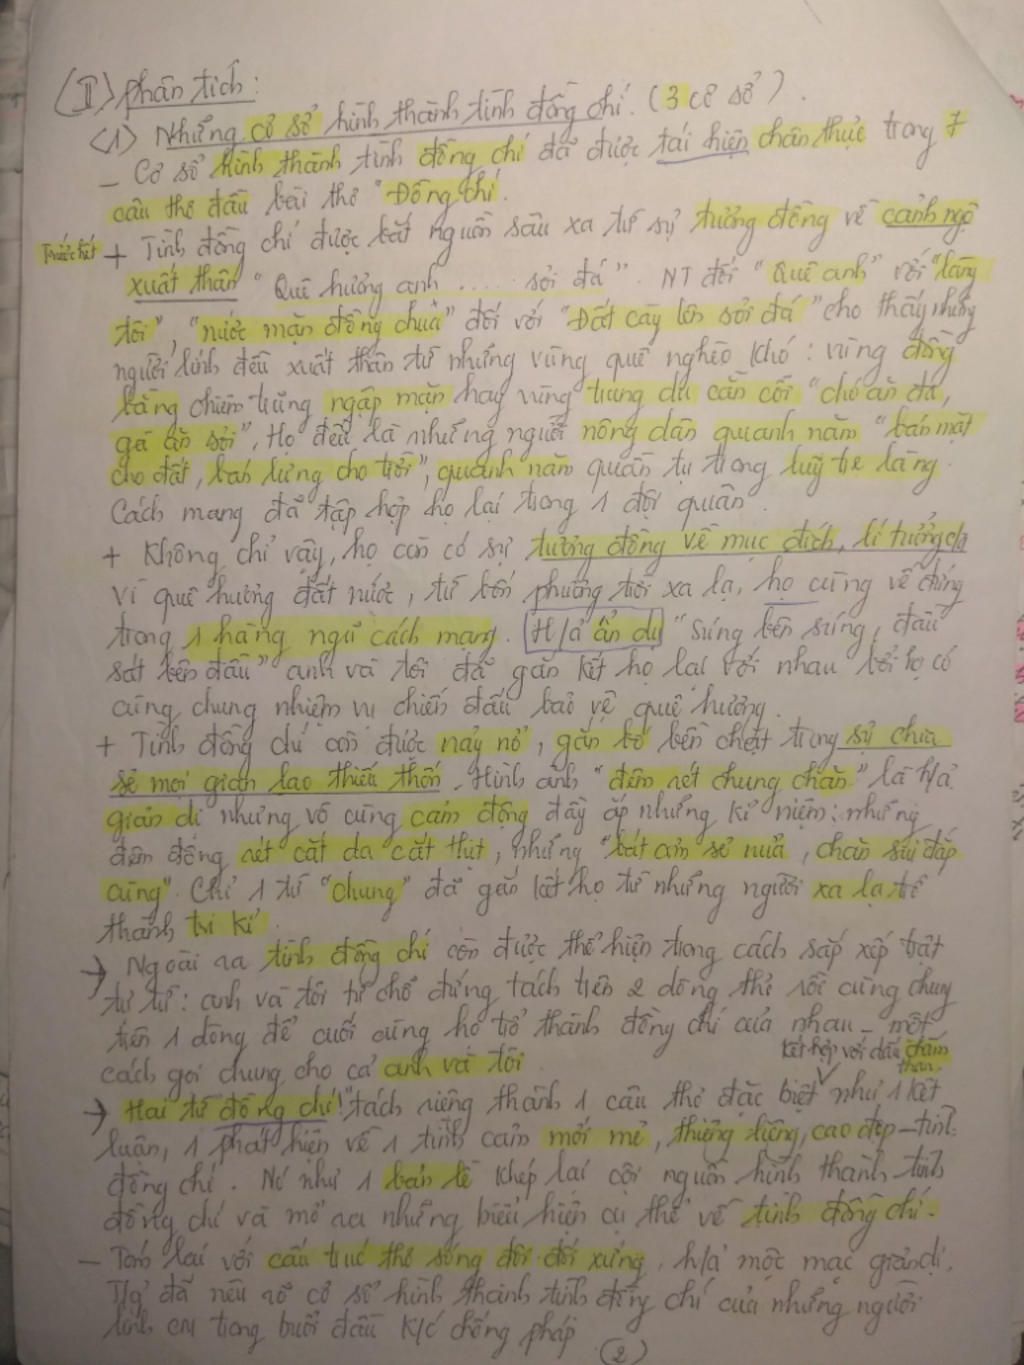 (II) phân tích:
(1) Những cơ sở hình thành tình đồng chí. (3 cơ sở).
- Cơ sở hình thành tình đồng chí đã được tái hiện chân thực trong 7
câu thơ đầu bài thơ "Đồng chí.
Trước hết + Tình đồng chí được bắt nguồn sâu xa từ sự tương đồng về cảnh ngộ
xuất thân "Quê hương anh ..... sỏi đá". NT đối "Quê anh" với "làng
tôi", "nước mặn đồng chua" đối với "Đất cày lên sỏi đá" cho thấy những
người lính đều xuất thân từ những vùng quê nghèo khó: vùng đồng
bằng chiêm trũng ngập mặn hay vùng trung du cằn cỗi "chó ăn đá,
gà ăn sỏi". Họ đều là những người nông dân quanh năm "bán mặt
cho đất, bán lưng cho trời", quanh năm quần tụ trong luỹ tre làng.
Cách mạng đã tập hợp họ lại trong 1 đội quân.
+ Không chỉ vậy, họ còn có sự tương đồng về mục đích, lí tưởng
vì quê hương đất nước, từ bốn phương trời xa lạ, họ cùng về đứng
trong 1 hàng ngũ cách mạng. H/ả ẩn dụ "Súng bên súng, đầu
sát bên đầu" anh và tôi đã gắn kết họ lại với nhau bởi họ có
cùng chung nhiệm vụ chiến đấu bảo vệ quê hương.
+ Tình đồng chí còn được nảy nở, gắn bó bền chặt trong sự chia
sẻ mọi gian lao thiếu thốn. Hình ảnh "đêm rét chung chăn" là h/ả
giản dị nhưng vô cùng cảm động đầy ắp những kỉ niệm: những
đêm đông rét cắt da cắt thịt, những "bát cơm sẻ nửa, chăn sui đắp
cùng". Chỉ 1 từ "chung" đã gắn kết họ từ những người xa lạ trở
thành tri kỉ.
→ Ngoài ra tình đồng chí còn được thể hiện trong cách sắp xếp trật
tự từ: anh và tôi từ chỗ đứng tách trên 2 dòng thơ rồi cùng chung
trên 1 dòng để cuối cùng họ trở thành đồng chí của nhau - một
cách gọi chung cho cả anh và tôi. kết hợp với dấu chấm
than.
→ Hai từ "đồng chí!" tách riêng thành 1 câu thơ đặc biệt như 1 kết
luận, 1 phát hiện về 1 tình cảm mới mẻ, thiêng liêng, cao đẹp - tình
đồng chí. Nó như 1 bản lề khép lại cội nguồn hình thành tình
đồng chí và mở ra những biểu hiện cụ thể về tình đồng chí.
- Tóm lại với cấu trúc thơ sóng đôi đối xứng, h/ả mộc mạc giản dị,
T/g đã nêu rõ cơ sở hình thành tình đồng chí của những người
lính CM trong buổi đầu K/c chống pháp.
(2)